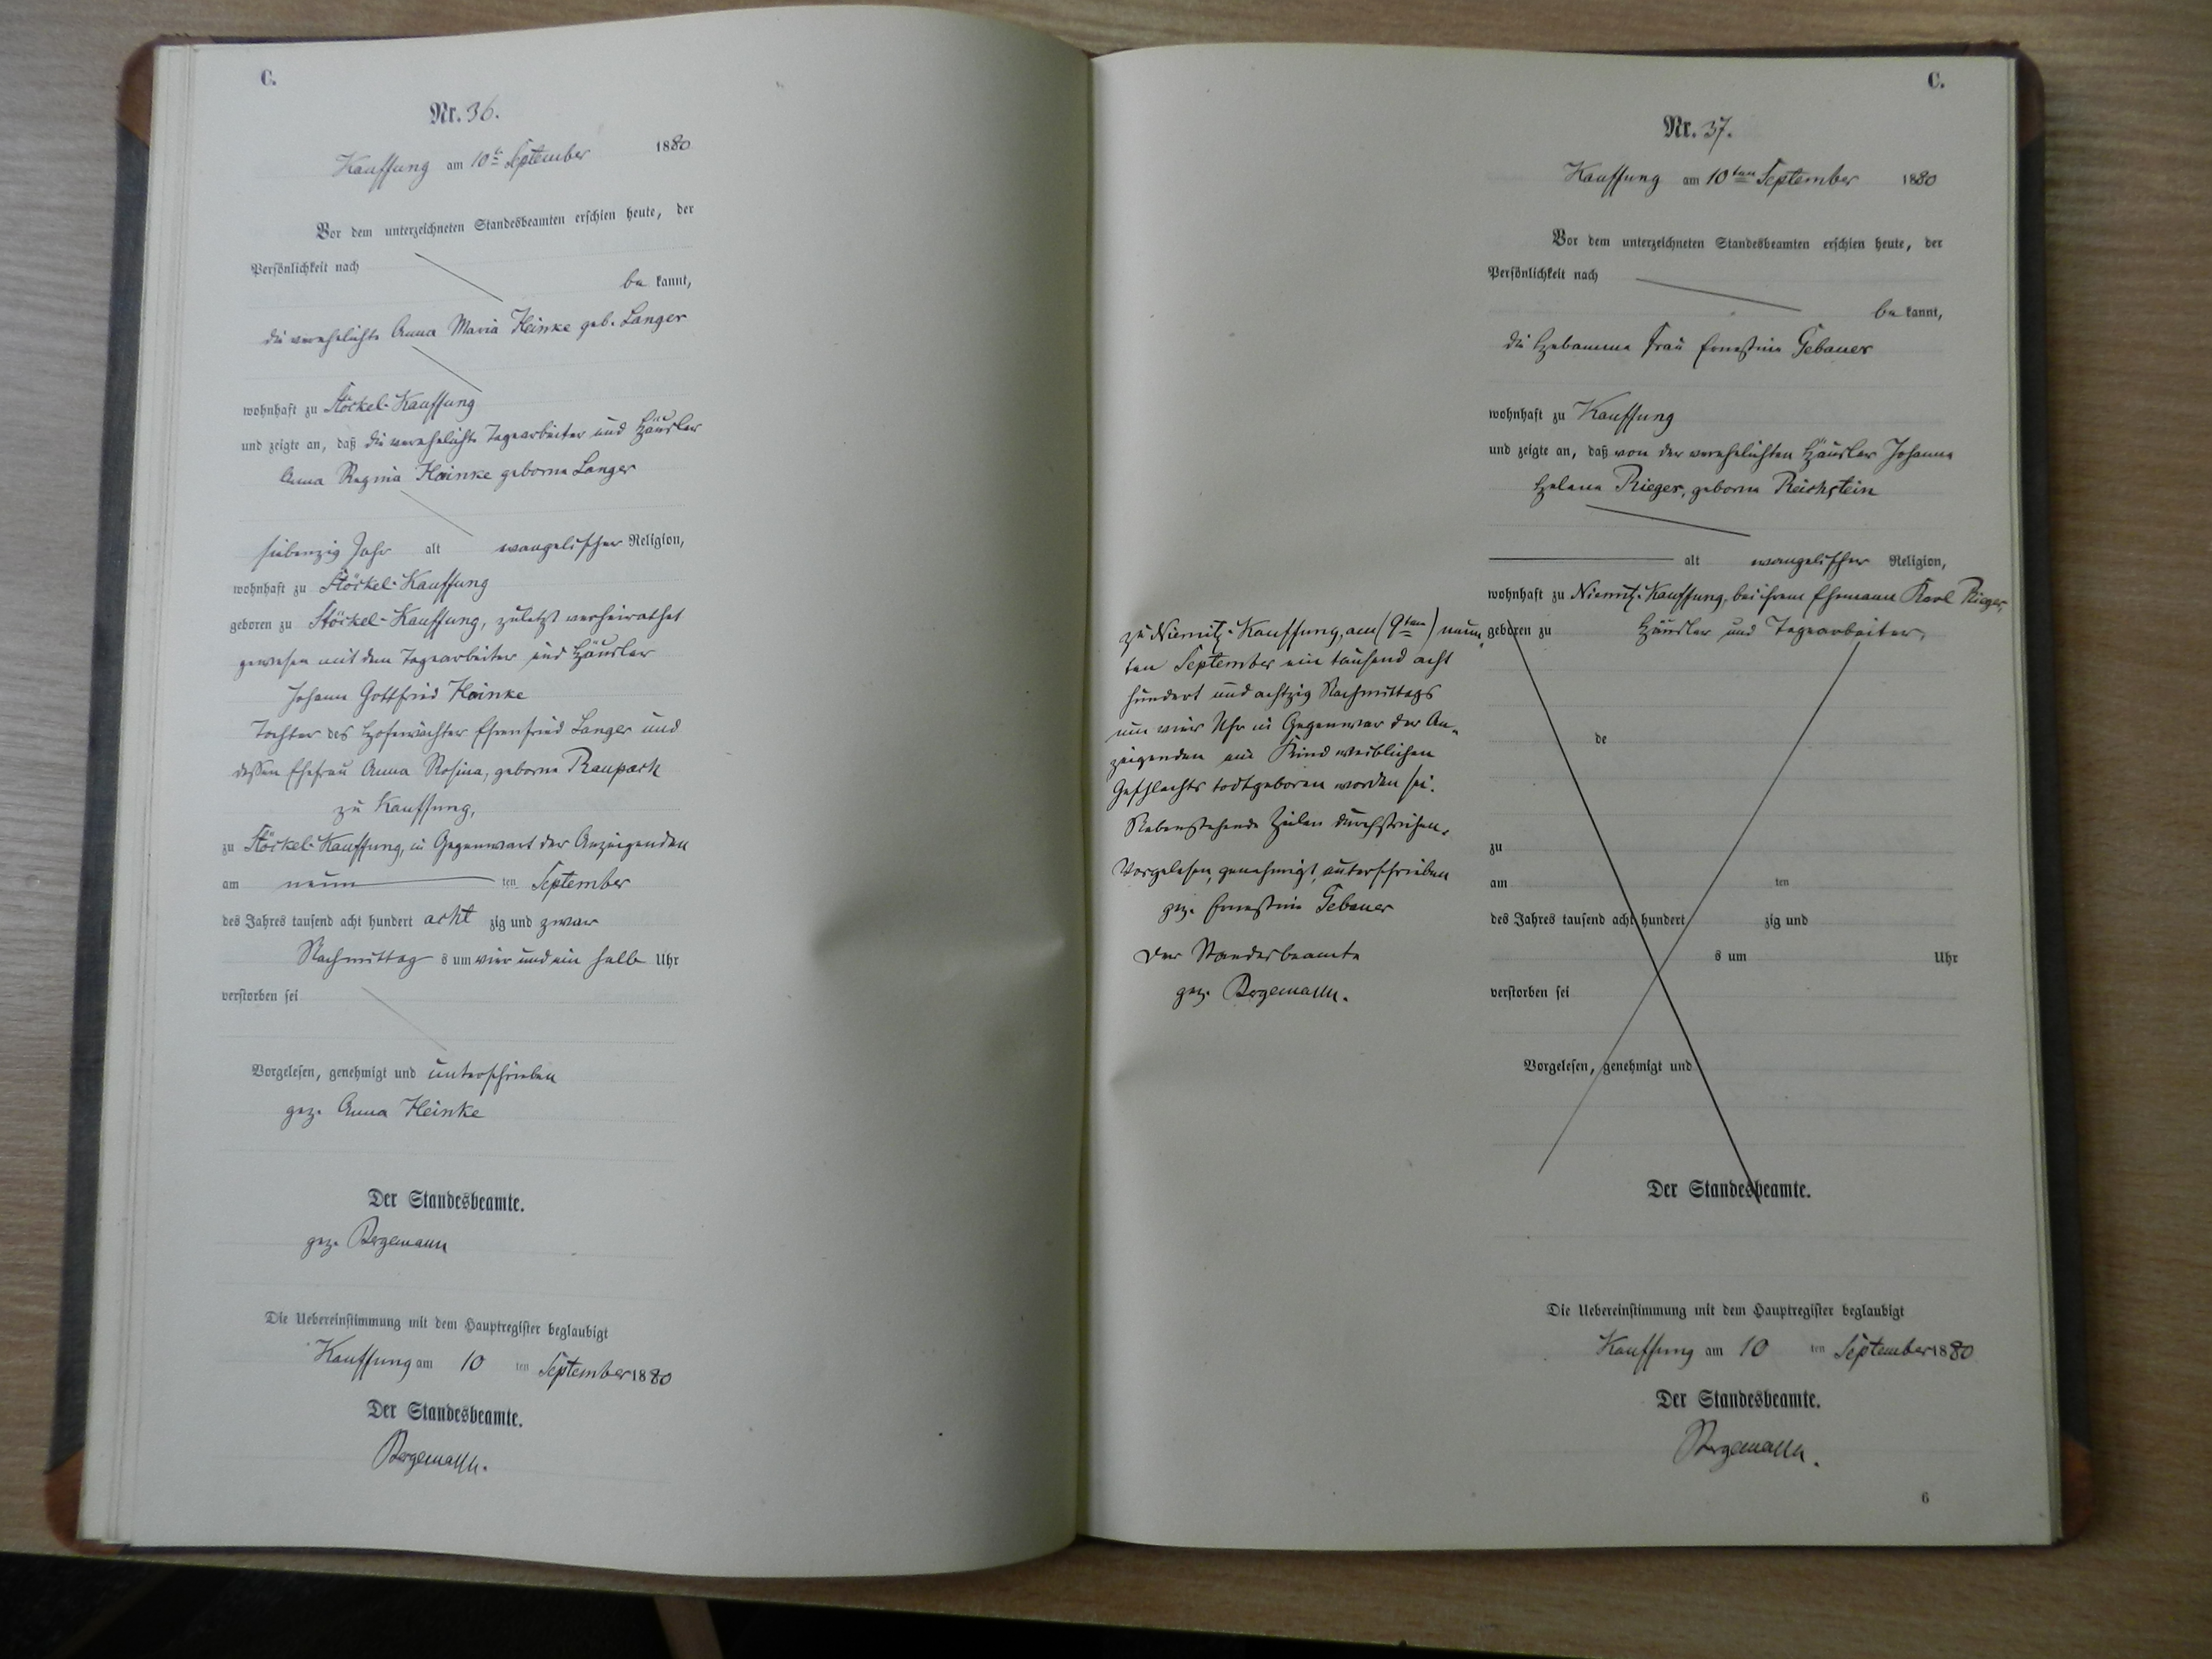 C.
Nr. 36.
Kauffung am 10t. September 1880
Vor dem unterzeichneten Standesbeamten erschien heute, der
Persönlichkeit nach
be kannt,
die verehelichte Anna Maria Heinke geb. Langer
wohnhaft zu Stöckel-Kauffung
und zeigte an, daß die verehelichte Tagearbeiter und Häusler
Anna Regina Heinke geborne Langer
siebenzig Jahr alt evangelischer Religion,
wohnhaft zu Stöckel-Kauffung
geboren zu Stöckel-Kauffung, zuletzt verheirathet
gewesen mit dem Tagearbeiter und Häusler
Johann Gottfried Heinke
Tochter des Hofewächter Ehrenfried Langer und
dessen Ehefrau Anna Rosina, geborne Raupach
zu Kauffung,
zu Stöckel-Kauffung, in Gegenwart der Anzeigenden
am neun ten September
des Jahres tausend acht hundert acht zig und zwar
Nachmittag s um vier und ein halb Uhr
verstorben sei
Vorgelesen, genehmigt und unterschrieben
gez. Anna Heinke
Der Standesbeamte.
gez. Bergemann
Die Uebereinstimmung mit dem Hauptregister beglaubigt
Kauffung am 10 ten September 1880
Der Standesbeamte.
Bergemann.
C.
Nr. 37.
Kauffung am 10ten September 1880
Vor dem unterzeichneten Standesbeamten erschien heute, der
Persönlichkeit nach
be kannt,
die Hebamme Frau Ernestine Gebauer
wohnhaft zu Kauffung
und zeigte an, daß von der verehelichten Häusler Johanne
Helene Rieger, geborne Reichstein
alt evangelischer Religion,
wohnhaft zu Niemitz-Kauffung, bei ihrem Ehemann Karl Rieger,
geboren zu Häusler und Tagearbeiter,
zu Niemitz-Kauffung, am (9ten) neun-
ten September ein tausend acht
hundert und achtzig Nachmittags
um vier Uhr in Gegenwar der An-
zeigenden ein Kind weiblichen
Geschlechts todtgeboren worden sei.
Nebenstehende Zeilen durchstrichen.
Vorgelesen, genehmigt, unterschrieben
gez. Ernestine Gebauer
Der Standesbeamte
gez. Bergemann.
de
zu
am ten
des Jahres tausend acht hundert zig und
s um Uhr
verstorben sei
Vorgelesen, genehmigt und
Der Standesbeamte.
Die Uebereinstimmung mit dem Hauptregister beglaubigt
Kauffung am 10 ten September 1880
Der Standesbeamte.
Bergemann.
6